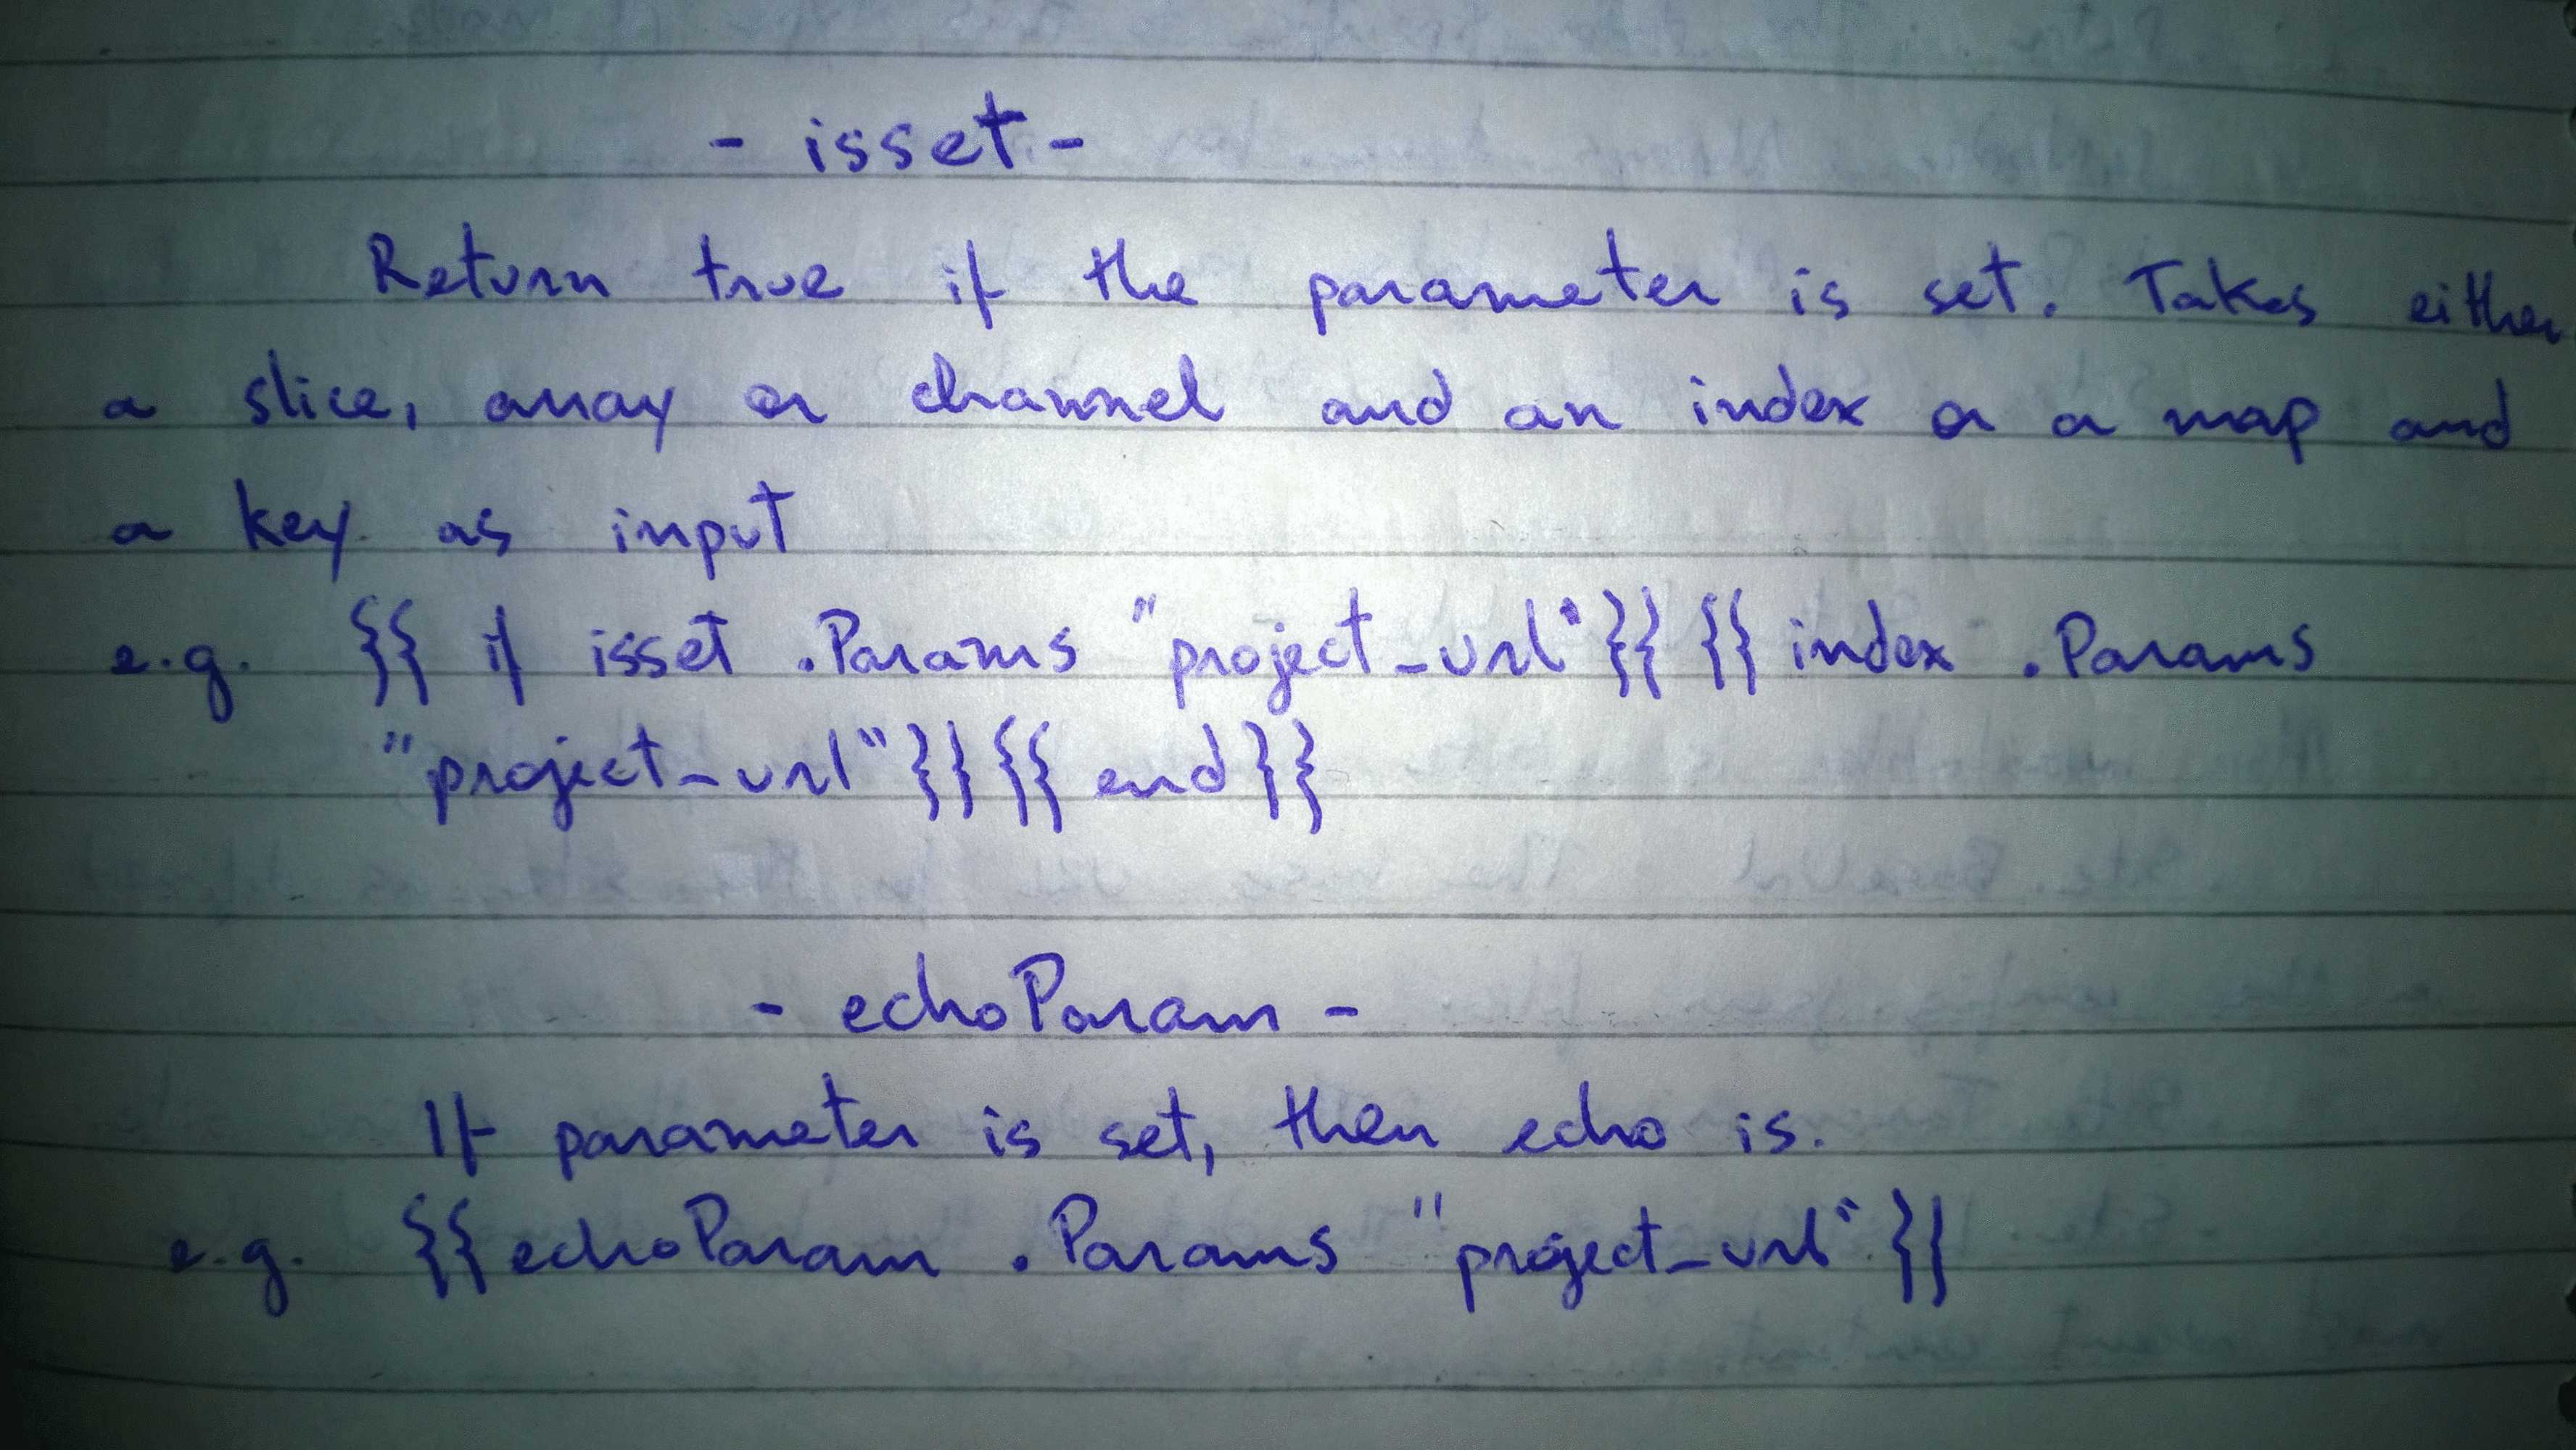 - isset -
Return true if the parameter is set. Takes either
a slice, array or channel and an index or a map and
a key as input
e.g. {{ if isset .Params "project_url"}} {{ index .Params
"project_url"}}{{ end}}
- echoParam -
If parameter is set, then echo is.
e.g. {{echoParam .Params "project_url"}}